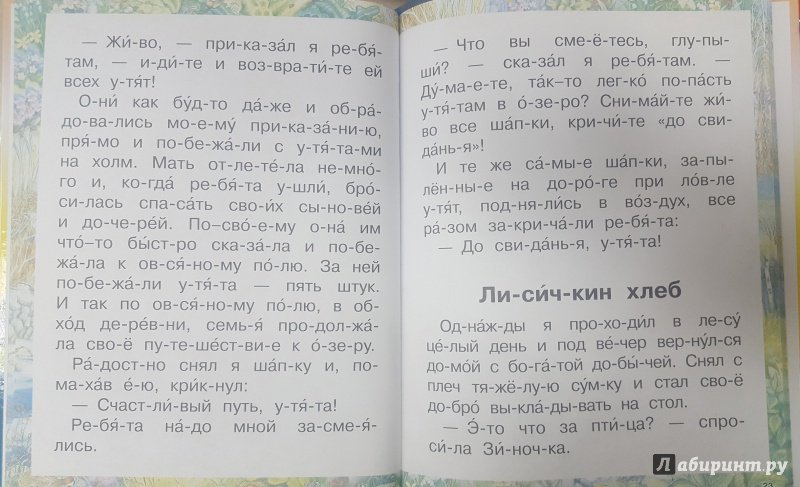 — Жи́-во, — при-ка-за́л я ре-бя́-
там, — и-ди́-те и воз-вра-ти́-те ей
всех у-тя́т!
О-ни́ как бу́д-то да́-же и об-ра́-
до-ва-лись мо-е-му́ при-ка-за́-ни-ю,
пря́-мо и по-бе-жа́-ли с у-тя́-та-ми
на холм. Мать от-ле-те́-ла не-мно́-
го и, ко-гда́ ре-бя́-та у-шли́, бро́-
си-лась спа-са́ть сво-и́х сы-но-ве́й
и до-че-ре́й. По–сво́-е-му о-на́ им
что́–то бы́ст-ро ска-за́-ла и по-бе-
жа́-ла к ов-ся́-но-му по́-лю. За ней
по-бе-жа́-ли у-тя́-та — пять штук.
И так по ов-ся́-но-му по́-лю, в об-
хо́д де-ре́в-ни, семь-я́ про-дол-жа́-
ла сво-ё пу-те-ше́ст-ви-е к о́-зе-ру.
Ра́-дост-но снял я ша́п-ку и, по-
ма-ха́в е́-ю, кри́к-нул:
— Счаст-ли́-вый путь, у-тя́-та!
Ре-бя́-та на́-до мной за-сме-я́-
лись.
— Что вы сме-ё-тесь, глу-пы-
ши́? — ска-за́л я ре-бя́-там. —
Ду́-ма-е-те, та́к–то лег-ко́ по-па́сть
у-тя́-там в о́-зе-ро? Сни-ма́й-те жи́-
во все ша́п-ки, кри-чи́-те «до сви-
да́нь-я»!
И те же са́-мы-е ша́п-ки, за-пы-
лён-ны-е на до-ро́-ге при ло́в-ле
у-тя́т, под-ня-ли́сь в во́з-дух, все
ра́-зом за-кри-ча́-ли ре-бя́-та:
— До сви-да́нь-я, у-тя́-та!
Ли-си́ч-кин хлеб
Од-на́ж-ды я про-хо-ди́л в ле-су́
це́-лый день и под ве́-чер вер-ну́л-ся
до-мо́й с бо-га́-той до-бы́-чей. Снял с
плеч тя-жё-лу-ю су́м-ку и стал сво-ё
до-бро́ вы-кла́-ды-вать на стол.
— Э́-то что за пти́-ца? — спро-
си́-ла Зи́-ноч-ка.
23
Лабиринт.ру